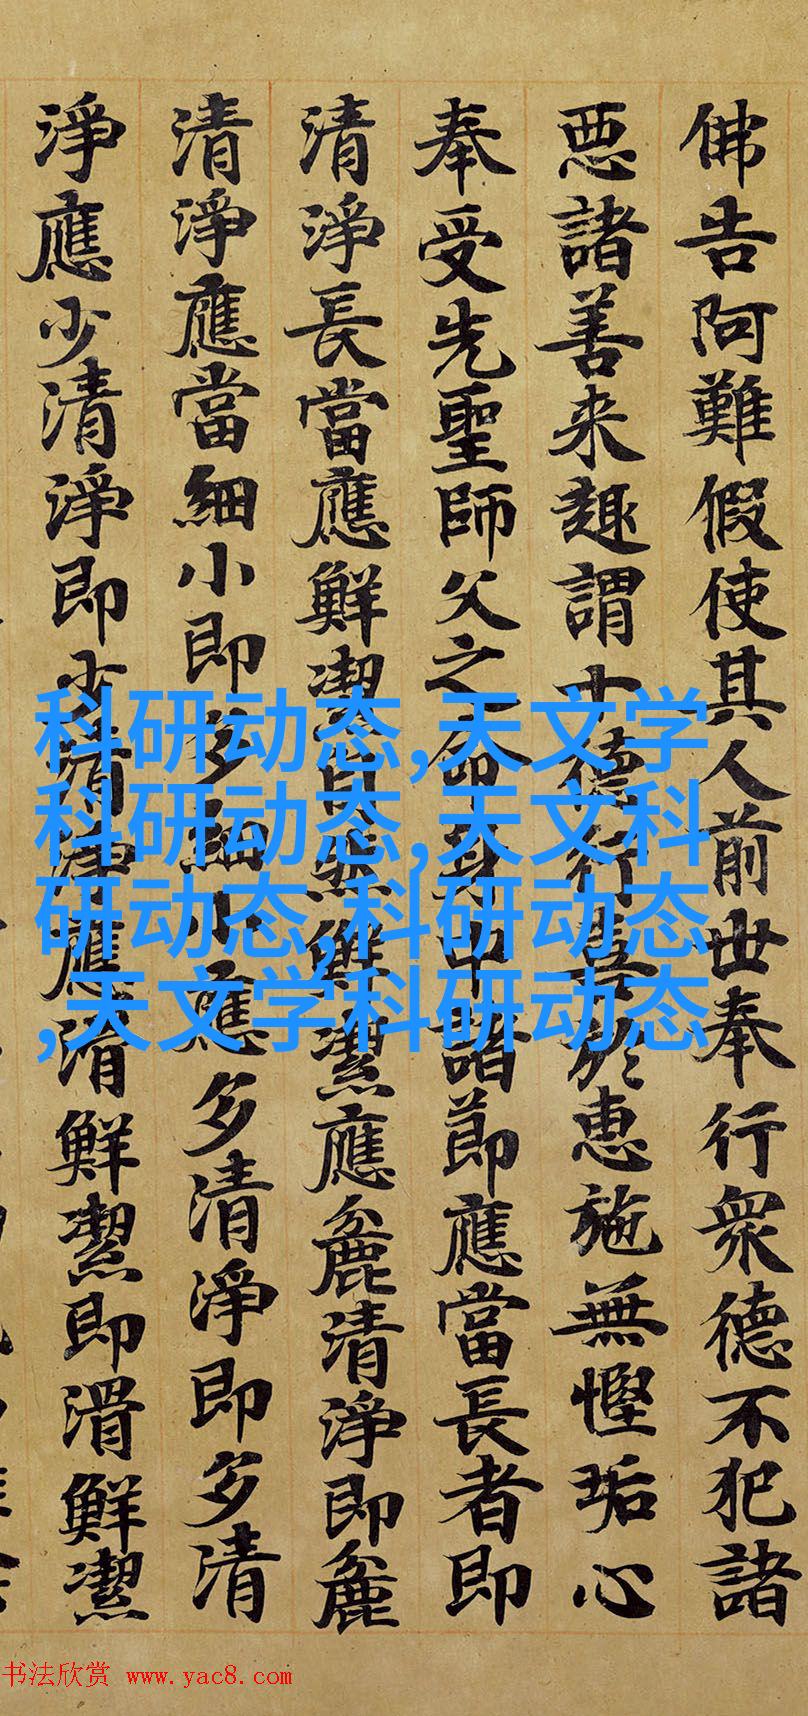 佛告阿難假使其人前世奉行眾德不犯諸
惡諸善来趣謂十德行喜於惠施無慳垢心
奉受先聖師父之命身中諸節應當長者即
清淨長當應鮮潔自然鮮潔應麁清淨即麁
清淨應當細小即多細小應多清淨即多清
淨應少清淨即少清淨應滑鮮潔即滑鮮潔
科研动态,天文学
科研动态,天文科
研动态,科研动态
,天文学科研动态
书法欣赏 www.yac8.com